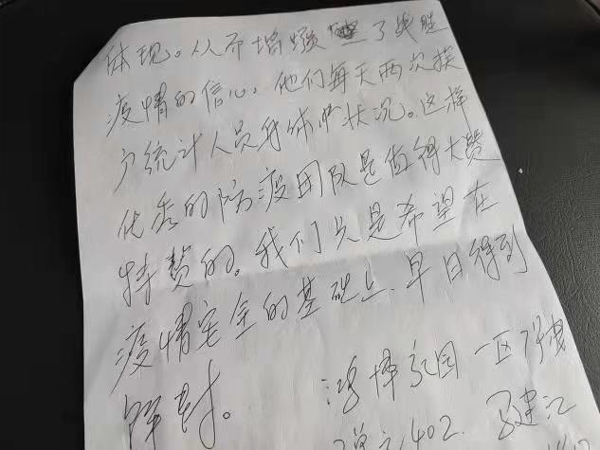 体现。从而增强了战胜
疫情的信心。他们每天两次挨
户统计人员身体状况。这样
优秀的防疫团队是值得大赞
特赞的。我们只是希望在
疫情安全的基础上.早日得到
解封。
鸿博家园一区
单元402.